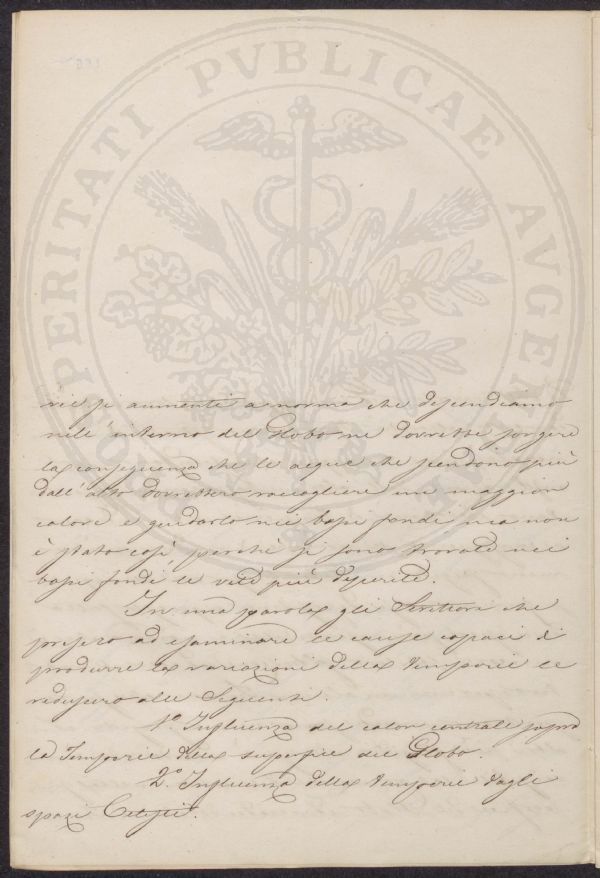 PROSPERITATI PVBLICAE AVGENDAE
rie si aumenti a norma che discendiamo
nell'interno del Globo ne dovrebbe sorgere
la conseguenza che le acque che scendono più
dall'alto dovrebbero raccogliere un maggior
calore e guidarlo nei bassi fondi ma non
è stato così, perchè si sono trovate nei
bassi fondi le valli più deserte.
In una parola gli Scrittori che
presero ad esaminare le cause capaci di
produrre la variazioni della temperie le
redussero alle Seguenti.
1.º Influenza del calor centrale sopra
la Temperie della superficie del Globo.
2.º Influenza della temperie dagli
spazi Celesti.